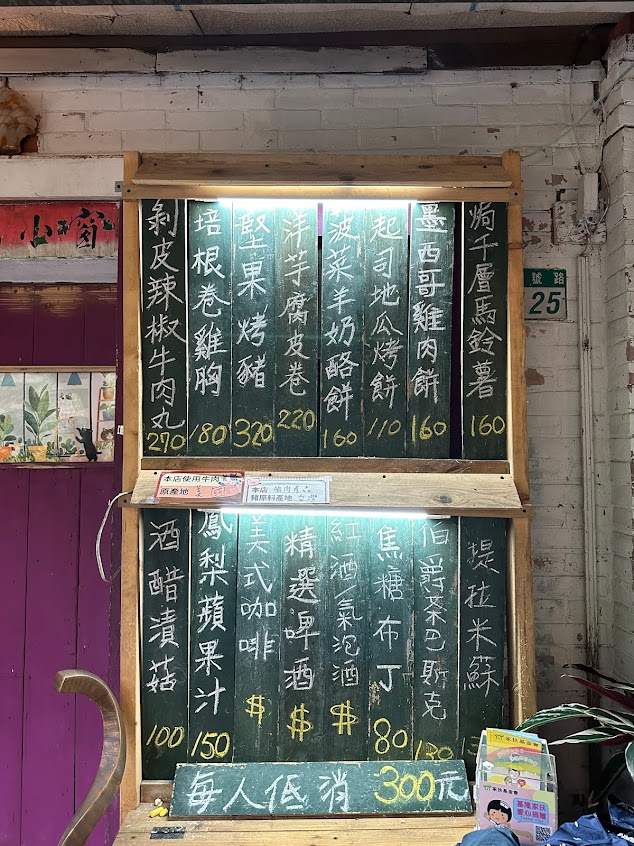 焗千層馬鈴薯 160
墨西哥雞肉餅 160
起司地瓜烤餅 110
波菜羊奶酪餅 160
洋芋腐皮卷 220
堅果烤豬 320
培根卷雞胸 180
剝皮辣椒牛肉丸 270
本店使用牛肉
原產地
本店
豬原料產地 台灣
提拉米蘇
伯爵茶巴斯克 130
焦糖布丁 80
紅酒/氣泡酒 $
精選啤酒 $
美式咖啡 $
鳳梨蘋果汁 150
酒醋漬菇 100
每人低消 300元
小窗
路
號
25
家扶基金會
家扶基金會
基隆家扶